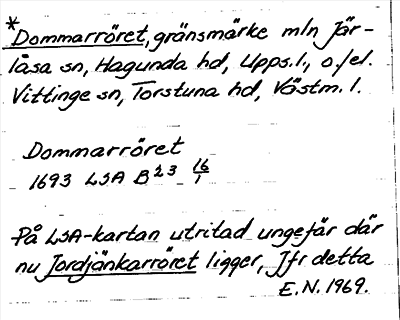 *Dommarröret, gränsmärke mln Jär-
låsa sn, Hagunda hd, Upps.l., o./el.
Vittinge sn, Torstuna hd, Västm. l.
Dommarröret
1693 LSA B23 16/1
På LSA-kartan utritad ungefär där
nu Jordjänkarröret ligger, Jfr detta
E.N. 1969.